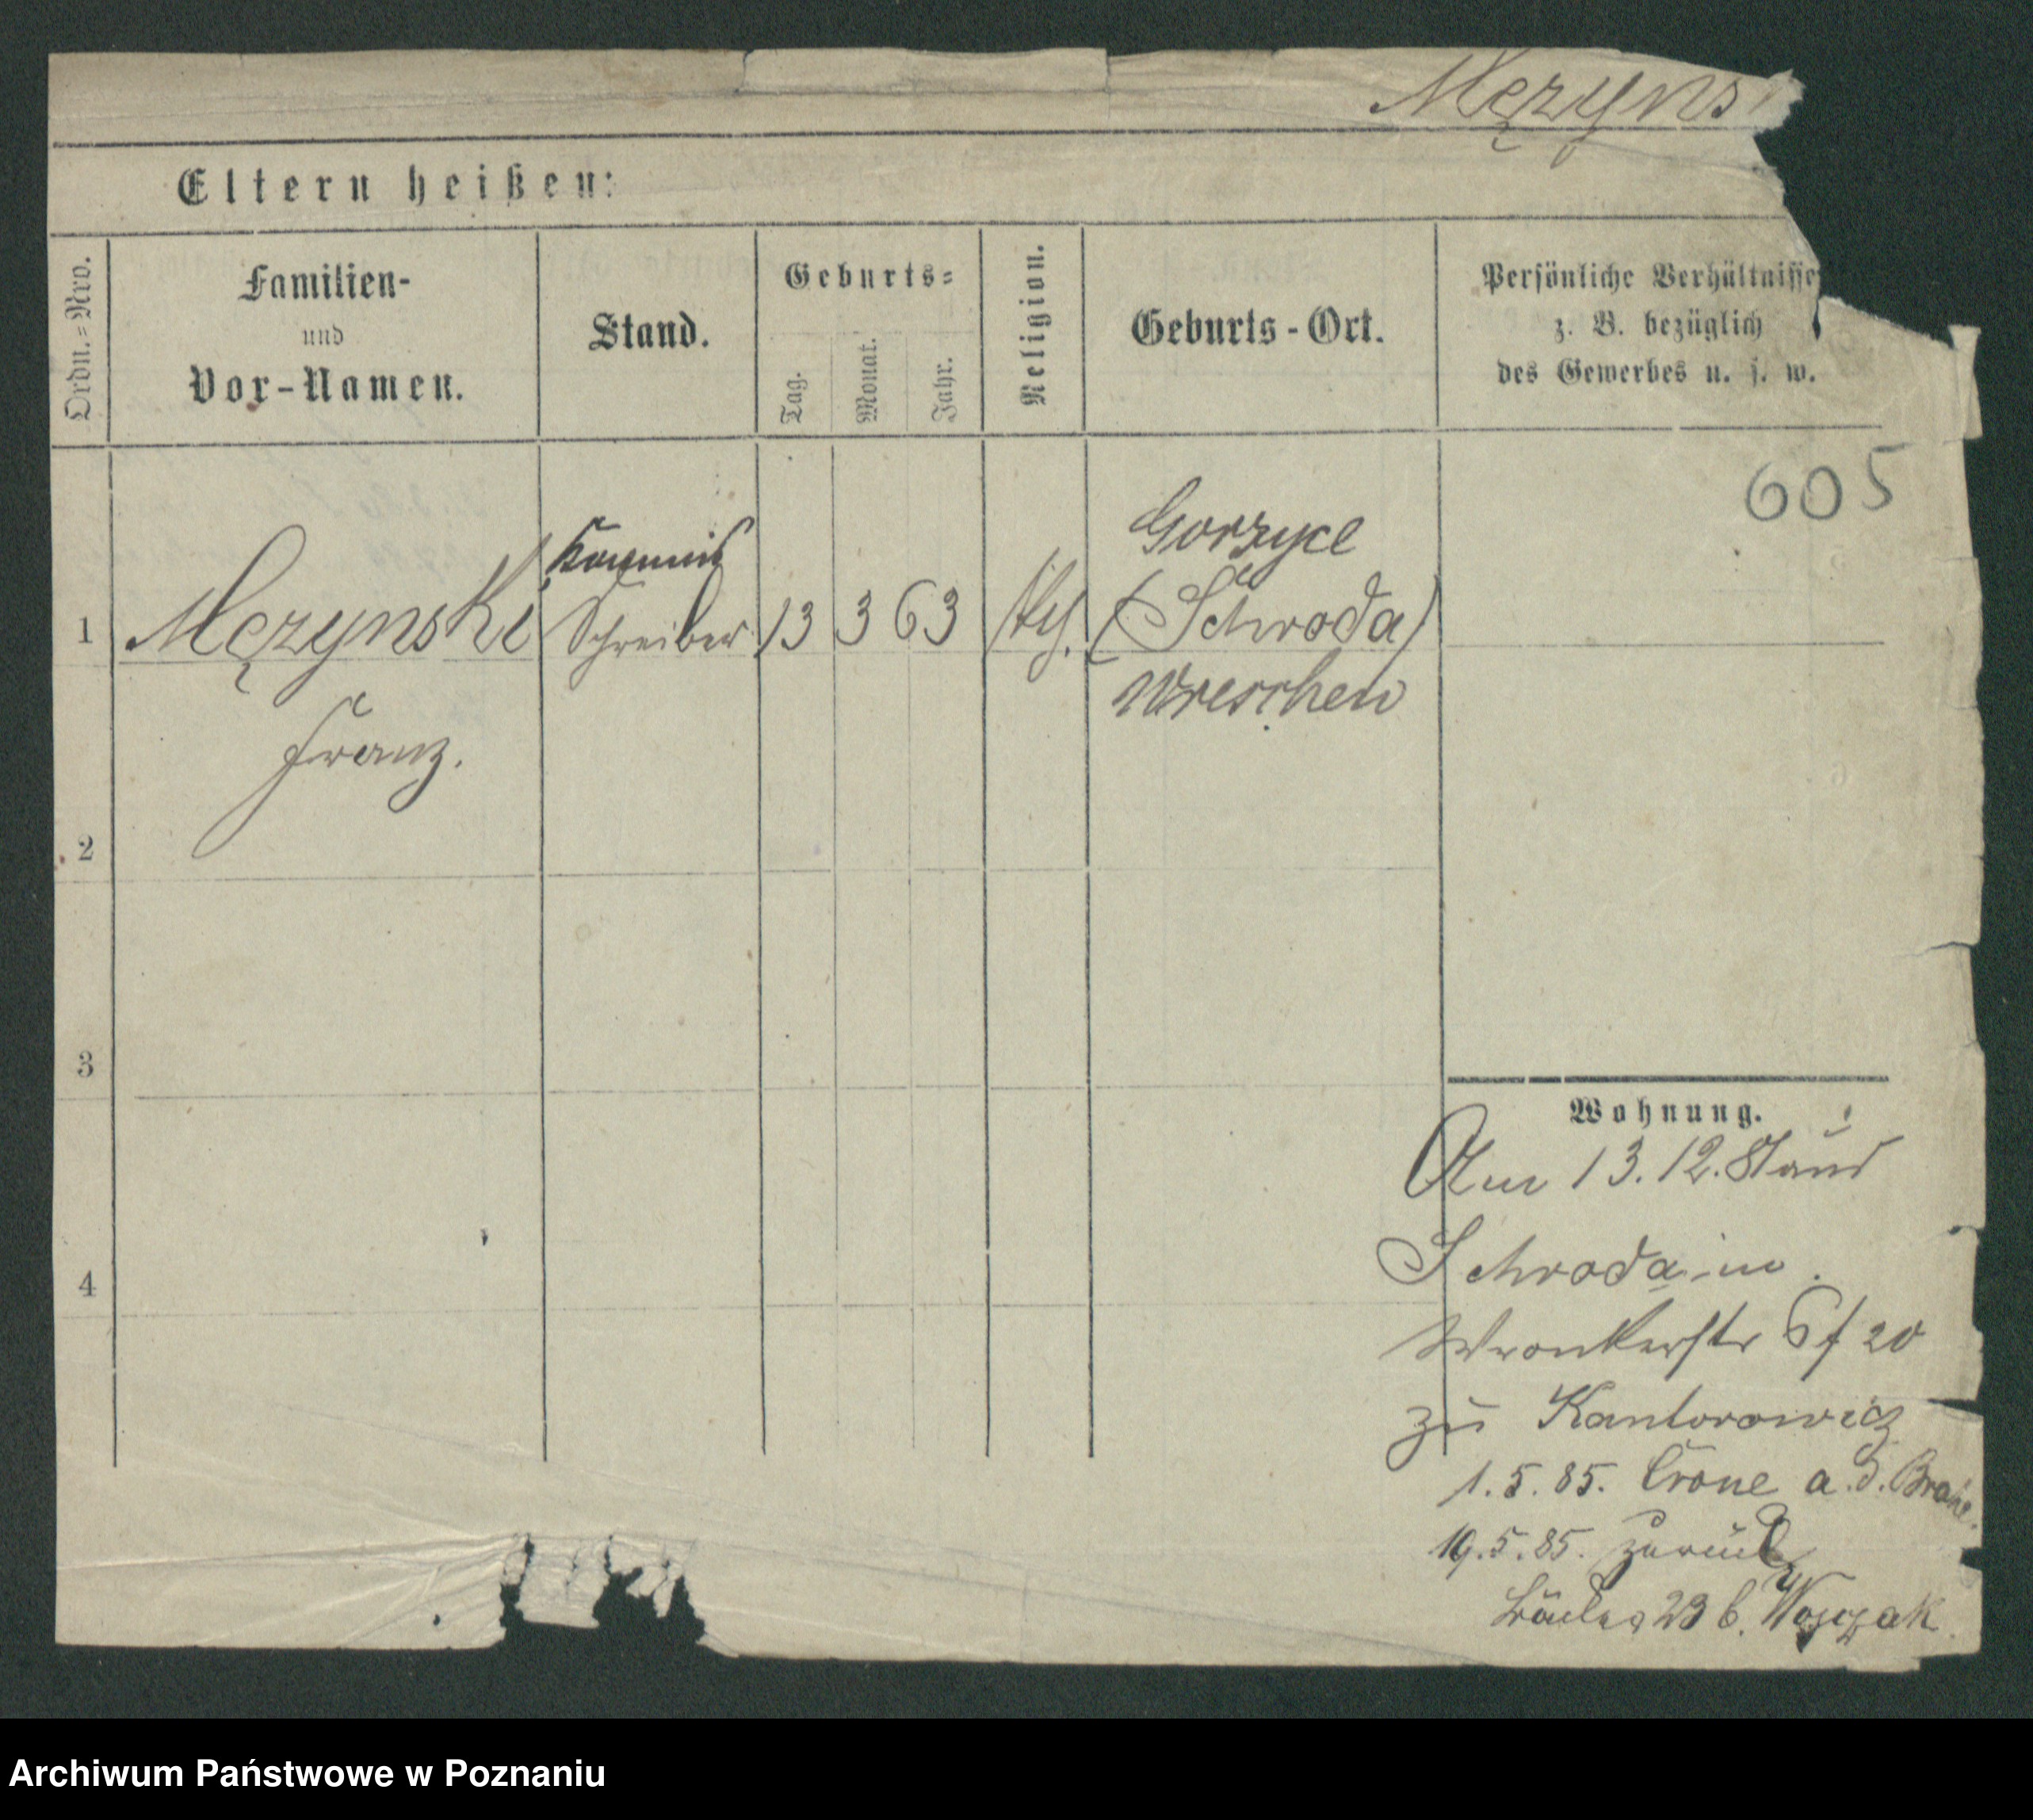 Męzyns
Eltern heißen:
Ordn.=Nro.
Familien-
und
Vor-Namen.
Stand.
Geburts=
Tag.
Monat.
Jahr.
Religion.
Geburts-Ort.
Persönliche Verhältnisse
z. B. bezüglich
des Gewerbes u. s. w.
605
1
Męzynski
Schreiber
13
3
63
Gorzyce
(Schroda)
Wreschen
Franz.
2
3
4
Wohnung.
Am 13. 12.
Schroda in
Wronkerstr 6 f 20
zu Kantorowicz
1. 5. 85. Crone a. d. Brahe.
19. 5. 85. zurück
23 b. Woyczak
Archiwum Państwowe w Poznaniu